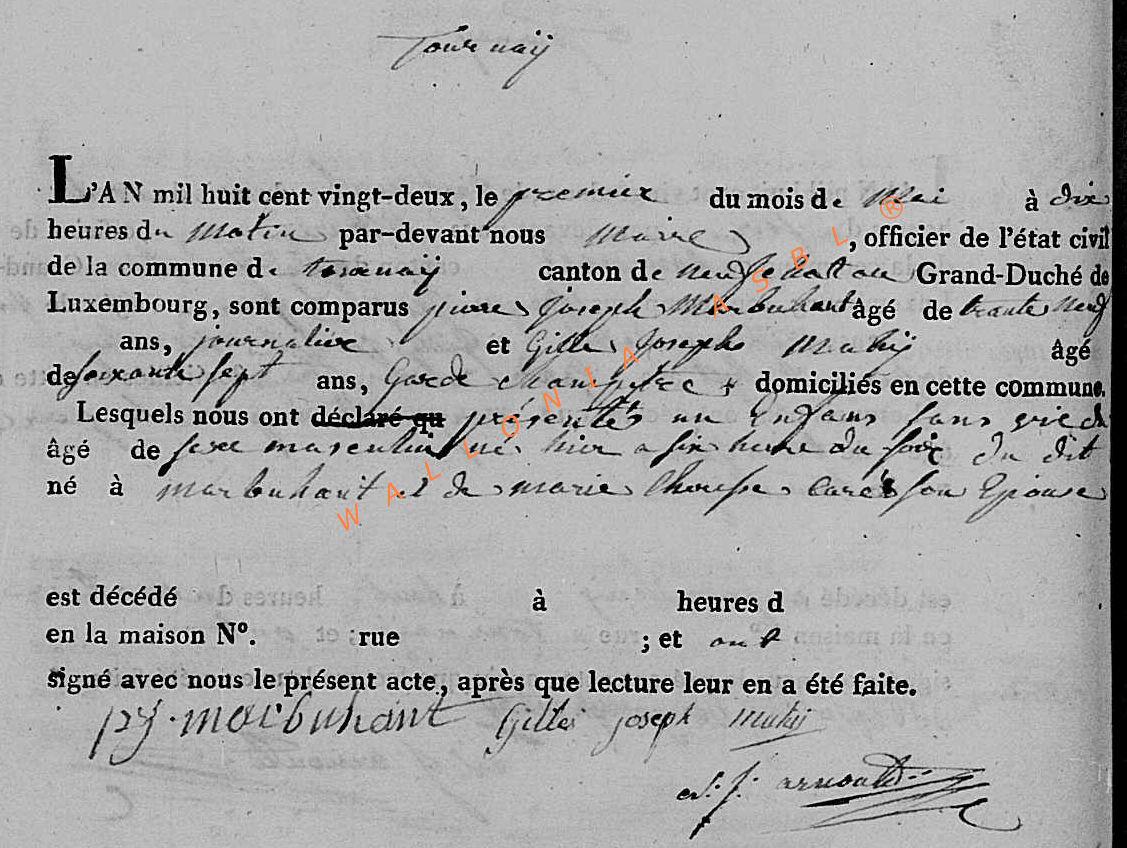 Tournaÿ
L'AN mil huit cent vingt-deux, le premier du mois de Mai à dix
heures du Matin par-devant nous Maire, officier de l'état civil
de la commune de tournaÿ canton de Neufchateau Grand-Duché de
Luxembourg, sont comparus pierre Joseph Marbuhant âgé de trante Neuf
ans, journalier et Gille Joseph Mahÿ âgé
de soixante sept ans, Garde Champetre domiciliés en cette commune.
Lesquels nous ont déclaré qu présentés un Enfans sans vie du
âgé de sexe masculin né hier a six heure du soir du dit
né à marbuhant et de marie therese son Epouse
est décédé à heures d
en la maison N°. rue ; et ont
signé avec nous le présent acte, après que lecture leur en a été faite.
pj. marbuhant Gilles joseph Mahÿ
j. arnould
WALLONIA ASBL ®